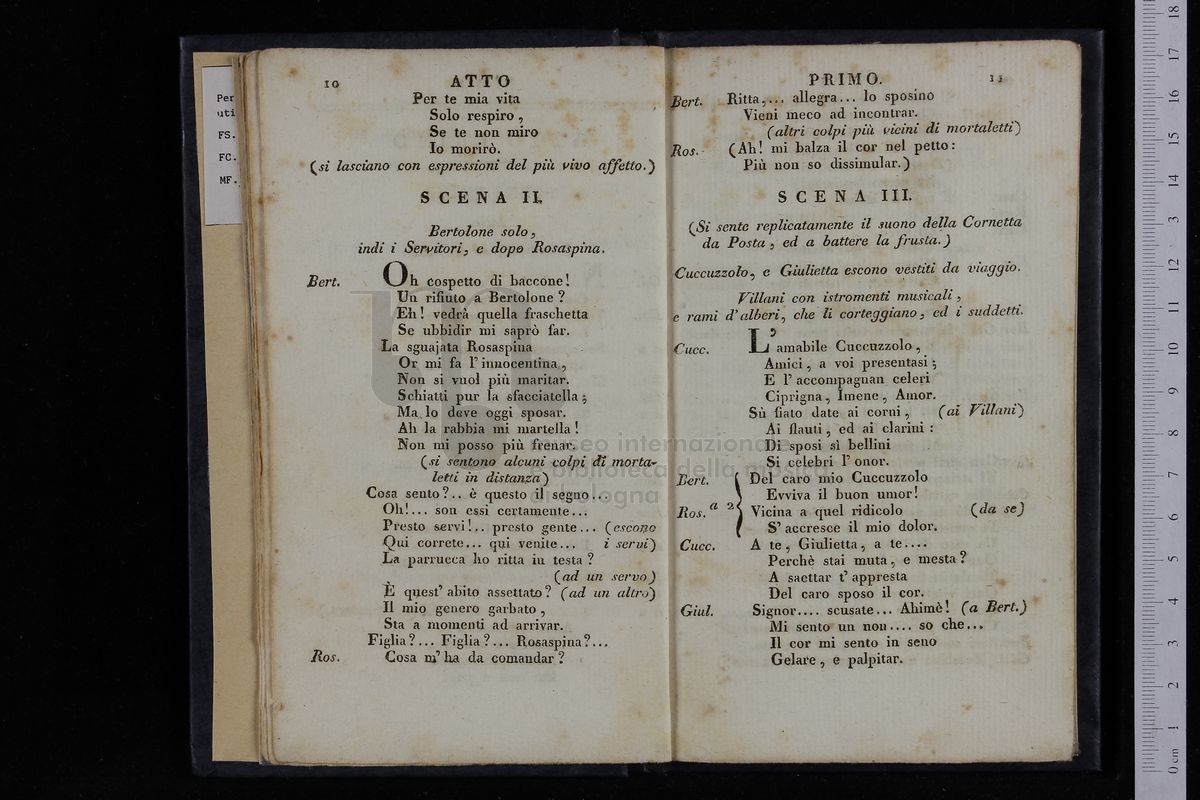 Per
uti
FS.
FC.
MF.
10 ATTO
Per te mia vita
Solo respiro,
Se te non miro
Io morirò.
(si lasciano con espressioni del più vivo affetto.)
SCENA II.
Bertolone solo,
indi i Servitori, e dopo Rosaspina.
Bert. Oh cospetto di baccone!
Un rifiuto a Bertolone?
Eh! vedrà quella fraschetta
Se ubbidir mi saprò far.
La sguajata Rosaspina
Or mi fa l'innocentina,
Non si vuol più maritar.
Schiatti pur la sfacciatella;
Ma lo deve oggi sposar.
Ah la rabbia mi martella!
Non mi posso più frenar.
(si sentono alcuni colpi di morta-
letti in distanza)
Cosa sento?.. è questo il segno...
Oh!... son essi certamente...
Presto servi!.. presto gente... (escono
Qui correte... qui venite... i servi)
La parrucca ho ritta in testa?
(ad un servo)
È quest'abito assettato? (ad un altro)
Il mio genero garbato,
Sta a momenti ad arrivar.
Figlia?... Figlia?... Rosaspina?...
Ros. Cosa m'ha da comandar?
PRIMO. 11
Bert. Ritta,... allegra... lo sposino
Vieni meco ad incontrar.
(altri colpi più vicini di mortaletti)
Ros. (Ah! mi balza il cor nel petto:
Più non so dissimular.)
SCENA III.
(Si sente replicatamente il suono della Cornetta
da Posta, ed a battere la frusta.)
Cuccuzzolo, e Giulietta escono vestiti da viaggio.
Villani con istromenti musicali,
e rami d'alberi, che li corteggiano, ed i suddetti.
Cucc. L'amabile Cuccuzzolo,
Amici, a voi presentasi;
E l'accompagnan celeri
Ciprigna, Imene, Amor.
Sù fiato date ai corni, (ai Villani)
Ai flauti, ed ai clarini:
Di sposi sì bellini
Si celebri l'onor.
Bert. Del caro mio Cuccuzzolo
Evviva il buon umor!
Ros. a 2 Vicina a quel ridicolo (da se)
S'accresce il mio dolor.
Cucc. A te, Giulietta, a te....
Perchè stai muta, e mesta?
A saettar t'appresta
Del caro sposo il cor.
Giul. Signor.... scusate... Ahimè! (a Bert.)
Mi sento un non.... so che...
Il cor mi sento in seno
Gelare, e palpitar.
museo internazionale
e biblioteca della musica
di bologna
0 cm 1 2 3 4 5 6 7 8 9 10 11 12 13 14 15 16 17 18